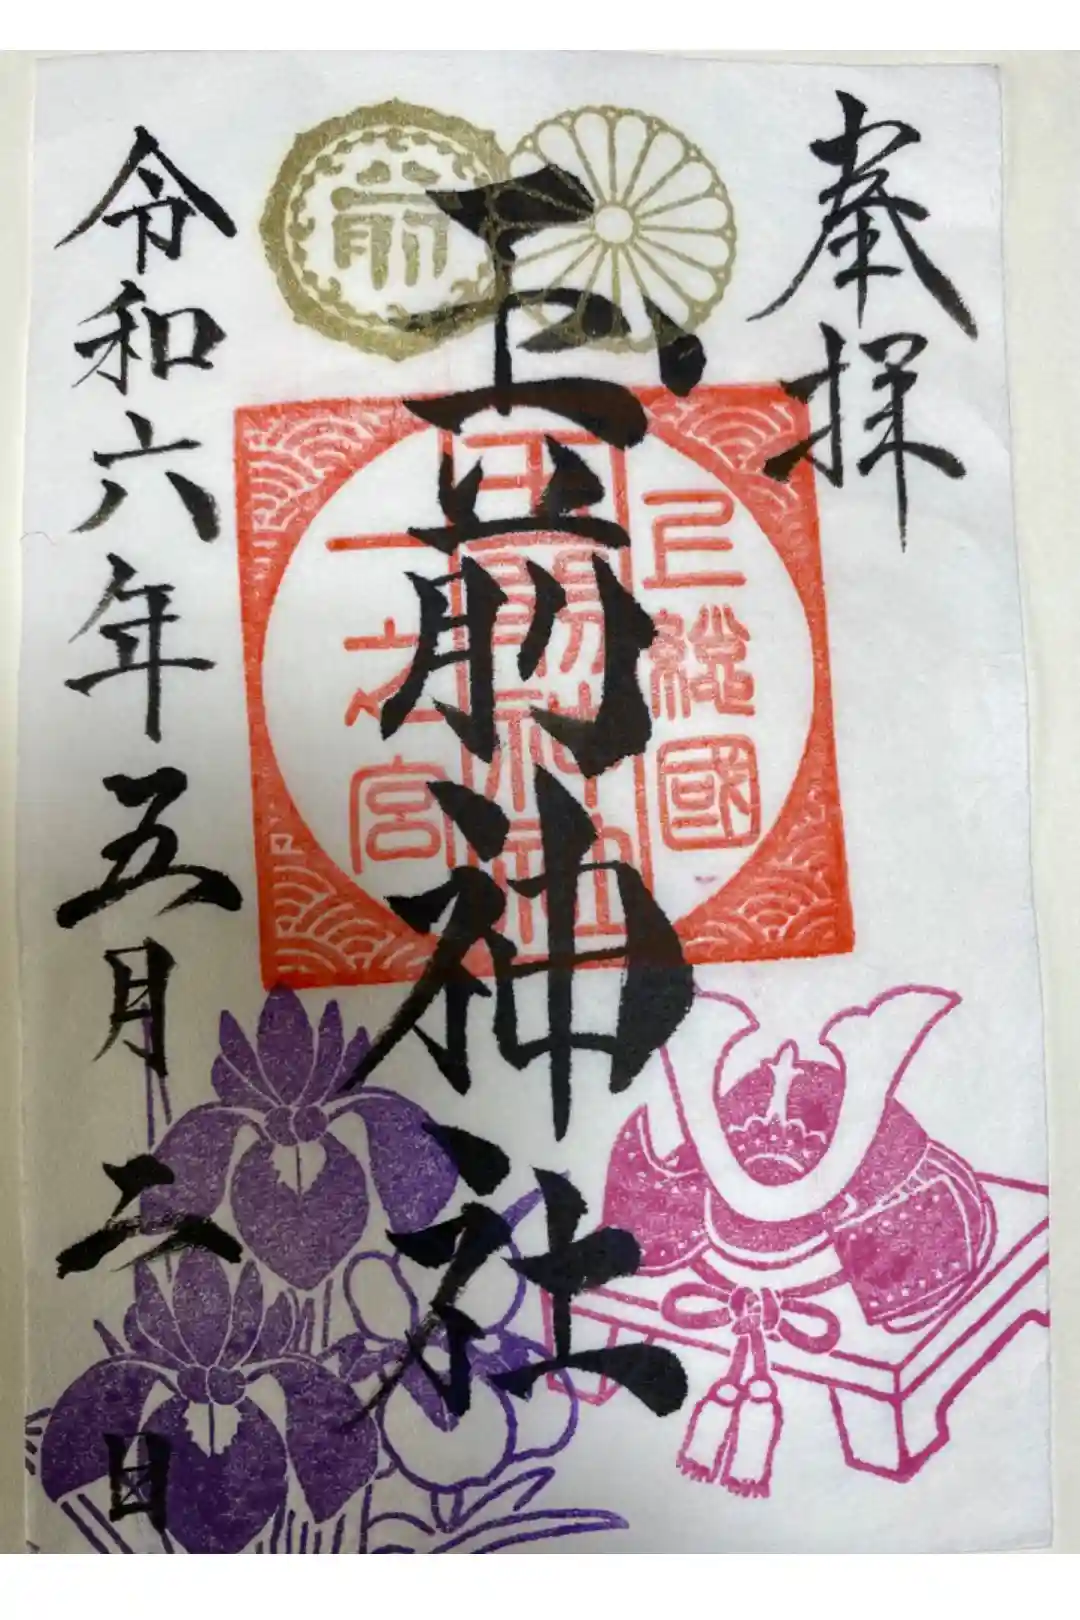 奉拝
上総國
玉前神社
一之宮
玉前神社
令和六年五月二日
前